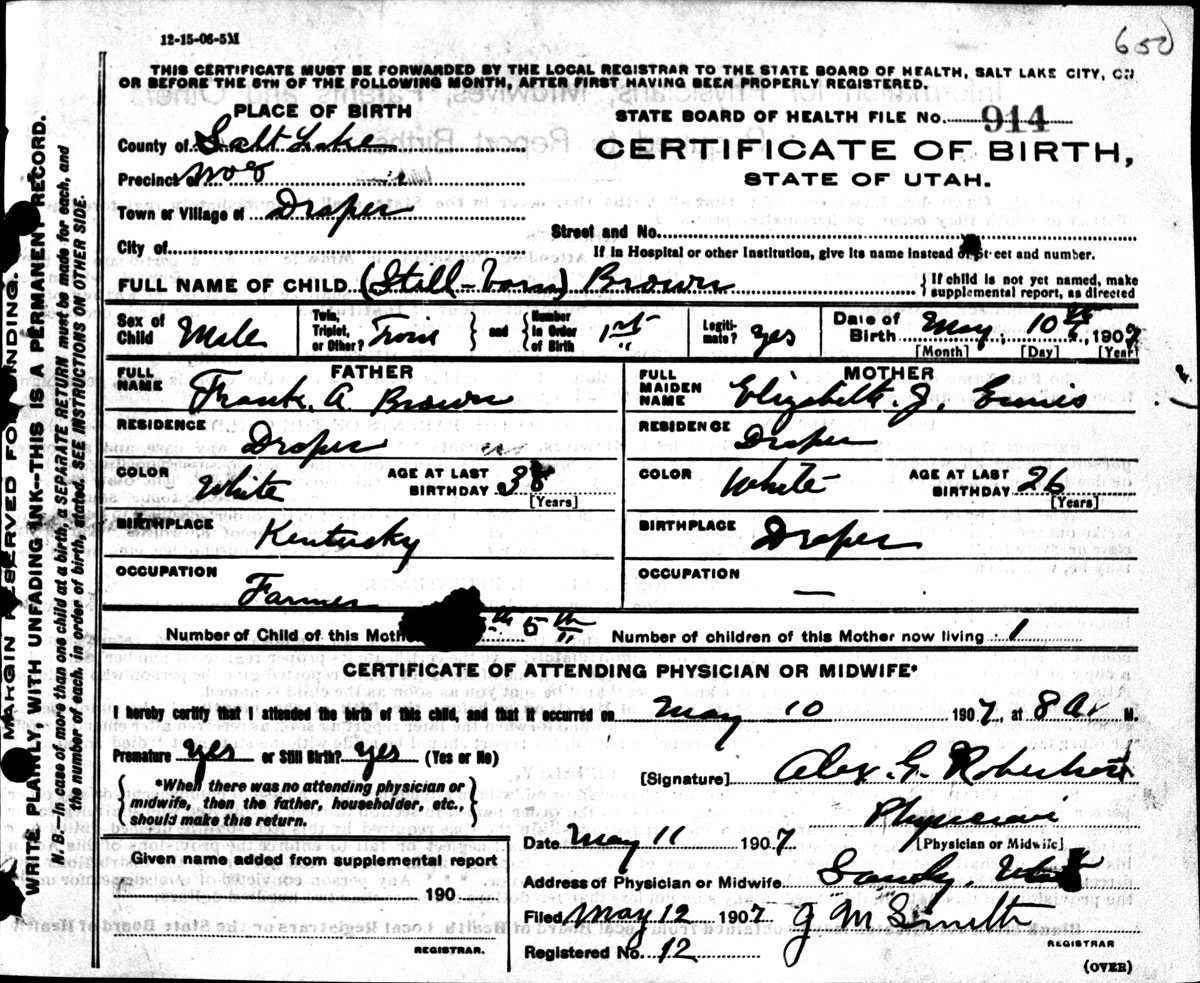 650
12-15-06-5M
THIS CERTIFICATE MUST BE FORWARDED BY THE LOCAL REGISTRAR TO THE STATE BOARD OF HEALTH, SALT LAKE CITY, ON
OR BEFORE THE 5TH OF THE FOLLOWING MONTH, AFTER FIRST HAVING BEEN PROPERLY REGISTERED.
PLACE OF BIRTH
STATE BOARD OF HEALTH FILE NO. 914
County of Salt Lake
CERTIFICATE OF BIRTH,
Precinct of No 8
STATE OF UTAH.
Town or Village of Draper
Street and No.
City of
If in Hospital or other Institution, give its name instead of street and number.
FULL NAME OF CHILD (Still-born) Brown
If child is not yet named, make
supplemental report, as directed
Sex of Child Male
Twin, Triplet, or Other? Twin
and Number in Order of Birth 1st
Legitimate? Yes
Date of Birth May, 10th, 1907
[Month] [Day] [Year]
FATHER
FULL NAME Frank. A. Brown
RESIDENCE Draper
COLOR White
AGE AT LAST BIRTHDAY 38
[Years]
BIRTHPLACE Kentucky
OCCUPATION Farmer
MOTHER
FULL MAIDEN NAME Elizabeth. J. Ennis
RESIDENCE Draper
COLOR White
AGE AT LAST BIRTHDAY 26
[Years]
BIRTHPLACE Draper
OCCUPATION —
Number of Child of this Moth 5th
Number of children of this Mother now living 1
CERTIFICATE OF ATTENDING PHYSICIAN OR MIDWIFE*
I hereby certify that I attended the birth of this child, and that it occurred on May 10 1907, at 8 A. M.
Premature yes or Still Birth? yes (Yes or No)
*When there was no attending physician or
midwife, then the father, householder, etc.,
should make this return.
Given name added from supplemental report
190
REGISTRAR.
[Signature] Alex. G. Robertson
Physician
[Physician or Midwife]
Date May 11 1907
Address of Physician or Midwife Sandy, Utah
Filed May 12 1907 J M Smith
REGISTRAR
Registered No. 12
(OVER)
MARGIN RESERVED FOR BINDING.
WRITE PLAINLY, WITH UNFADING INK—THIS IS A PERMANENT RECORD.
N. B.—In case of more than one child at a birth, a SEPARATE RETURN must be made for each, and
the number of each, in order of birth, stated. SEE INSTRUCTIONS ON OTHER SIDE.